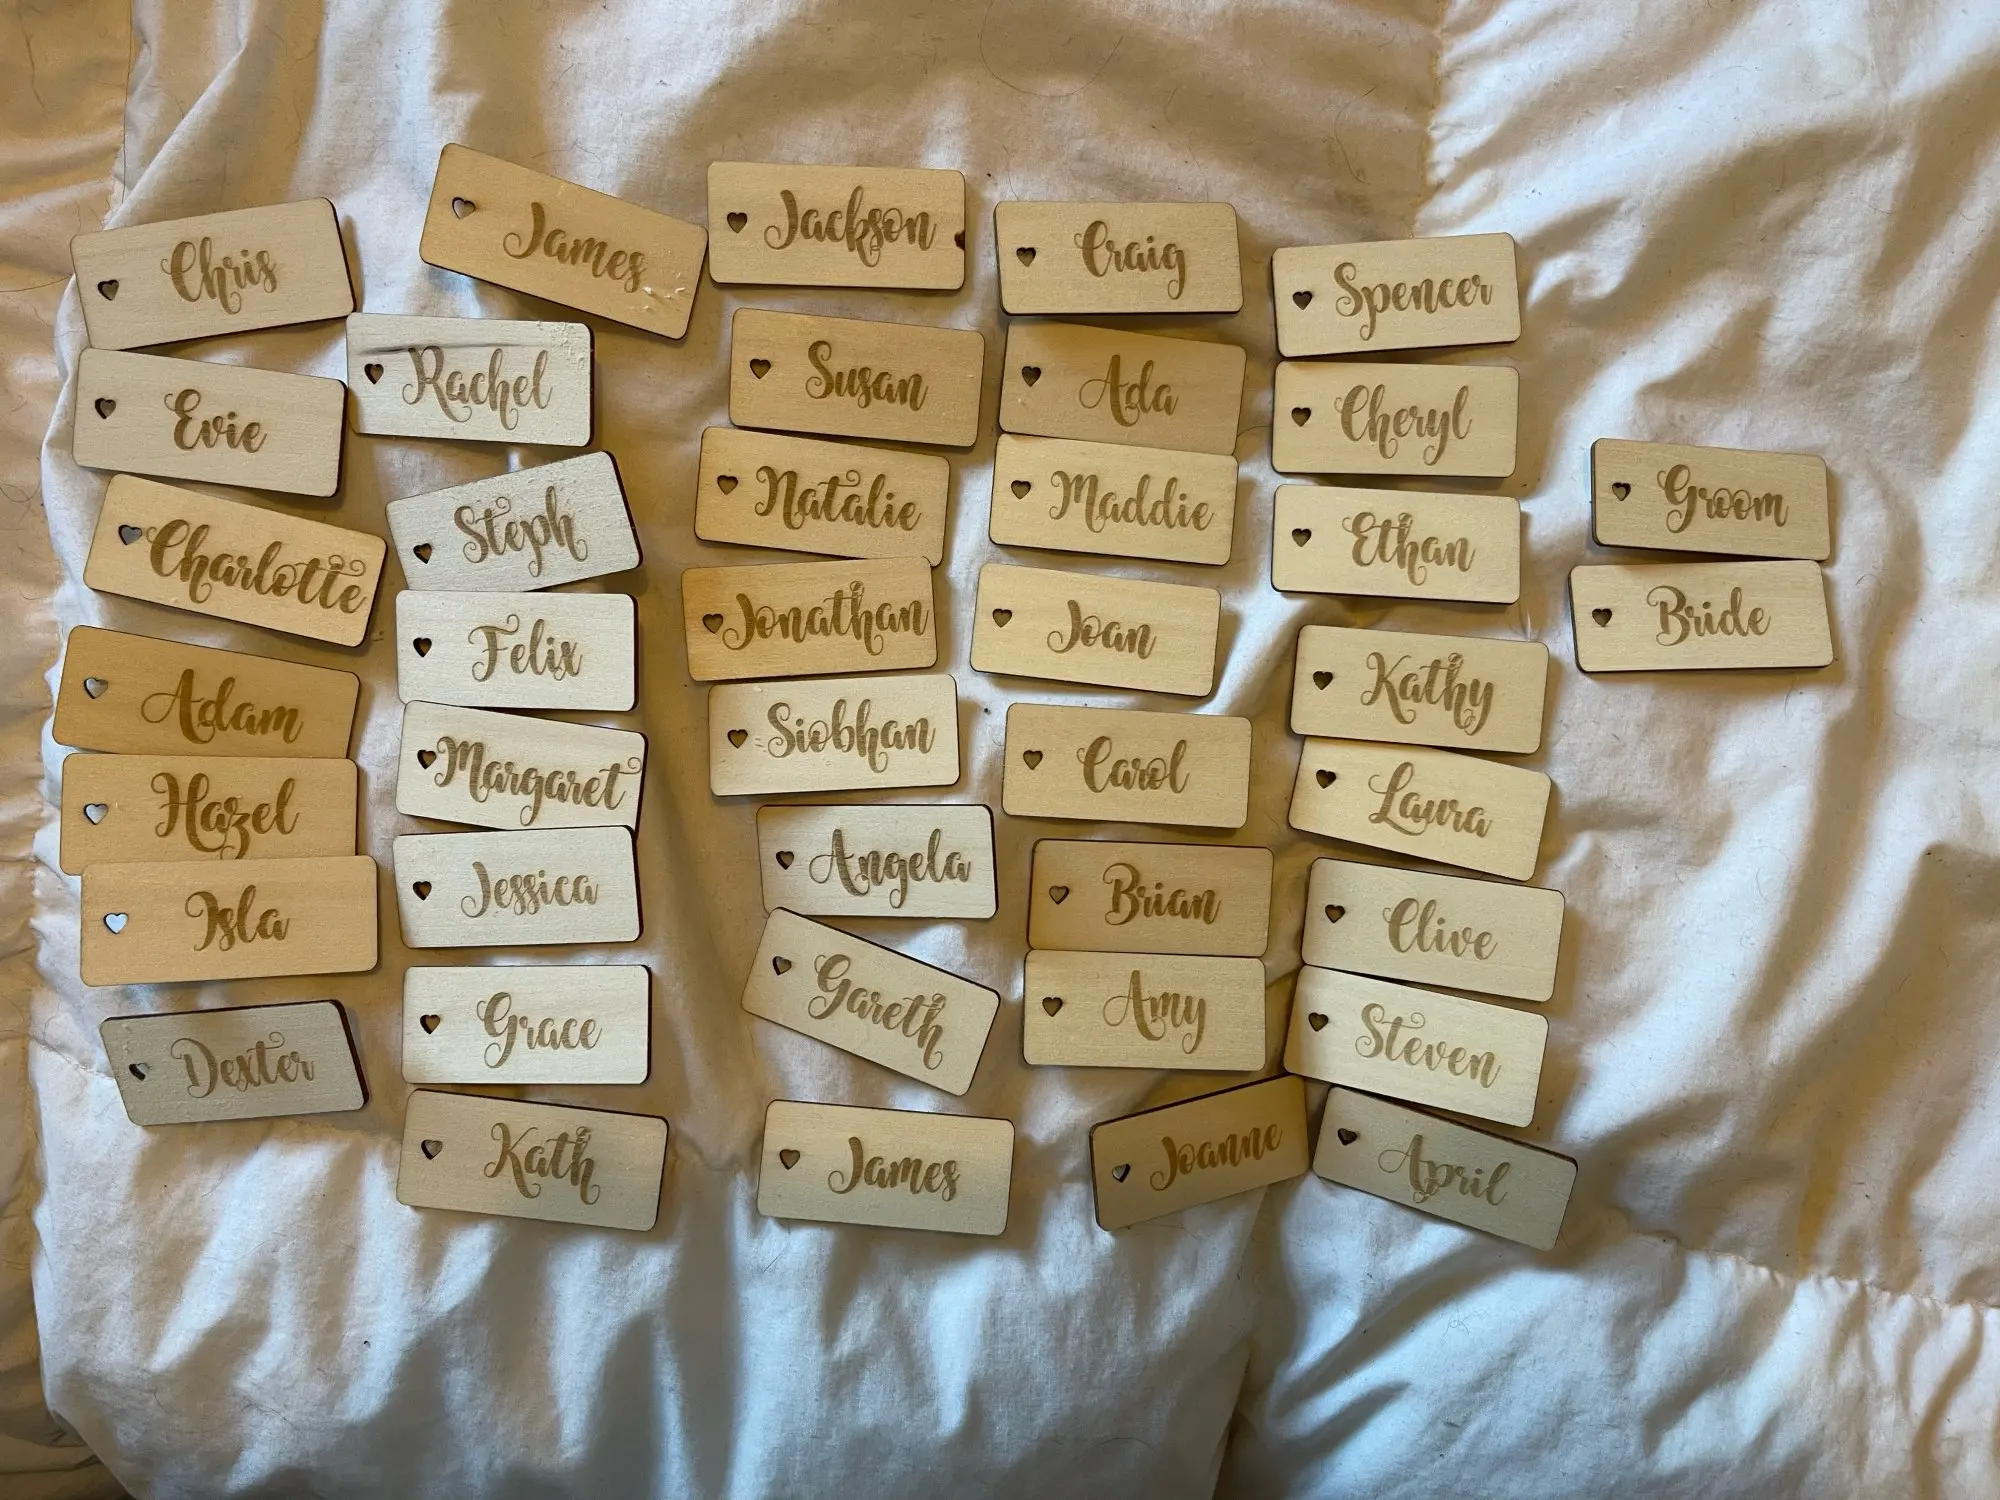 Chris
Evie
Charlotte
Adam
Hazel
Isla
Dexter
James
Rachel
Steph
Felix
Margaret
Jessica
Grace
Kath
Jackson
Susan
Natalie
Jonathan
Siobhan
Angela
Gareth
James
Craig
Ada
Maddie
Joan
Carol
Brian
Amy
Joanne
Spencer
Cheryl
Ethan
Kathy
Laura
Clive
Steven
April
Groom
Bride